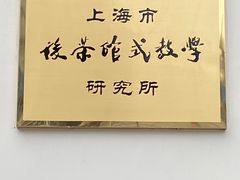 上海市
後茶馆式教學
研究所